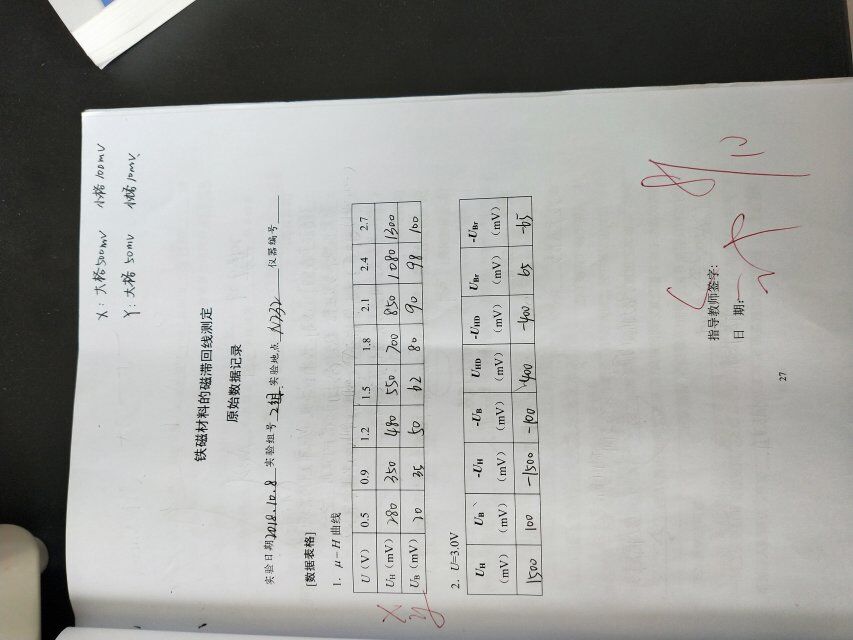 X: 大格500mV 小格100mV
Y: 大格50mV 小格10mV
铁磁材料的磁滞回线测定
原始数据记录
实验日期2018.10.8 实验组号2组 实验地点N232 仪器编号
[数据表格]
1. μ－H 曲线
U（V） 0.5 0.9 1.2 1.5 1.8 2.1 2.4 2.7
X UH（mV） 280 350 480 550 700 850 1080 1300
y UB（mV） 20 35 50 62 80 90 98 100
2. U=3.0V
UH UB -UH -UB UHD -UHD UBr -UBr
（mV） （mV） （mV） （mV） （mV） （mV） （mV） （mV）
1500 100 -1500 -100 400 -400 65 -65
指导教师签字:
日 期:
27